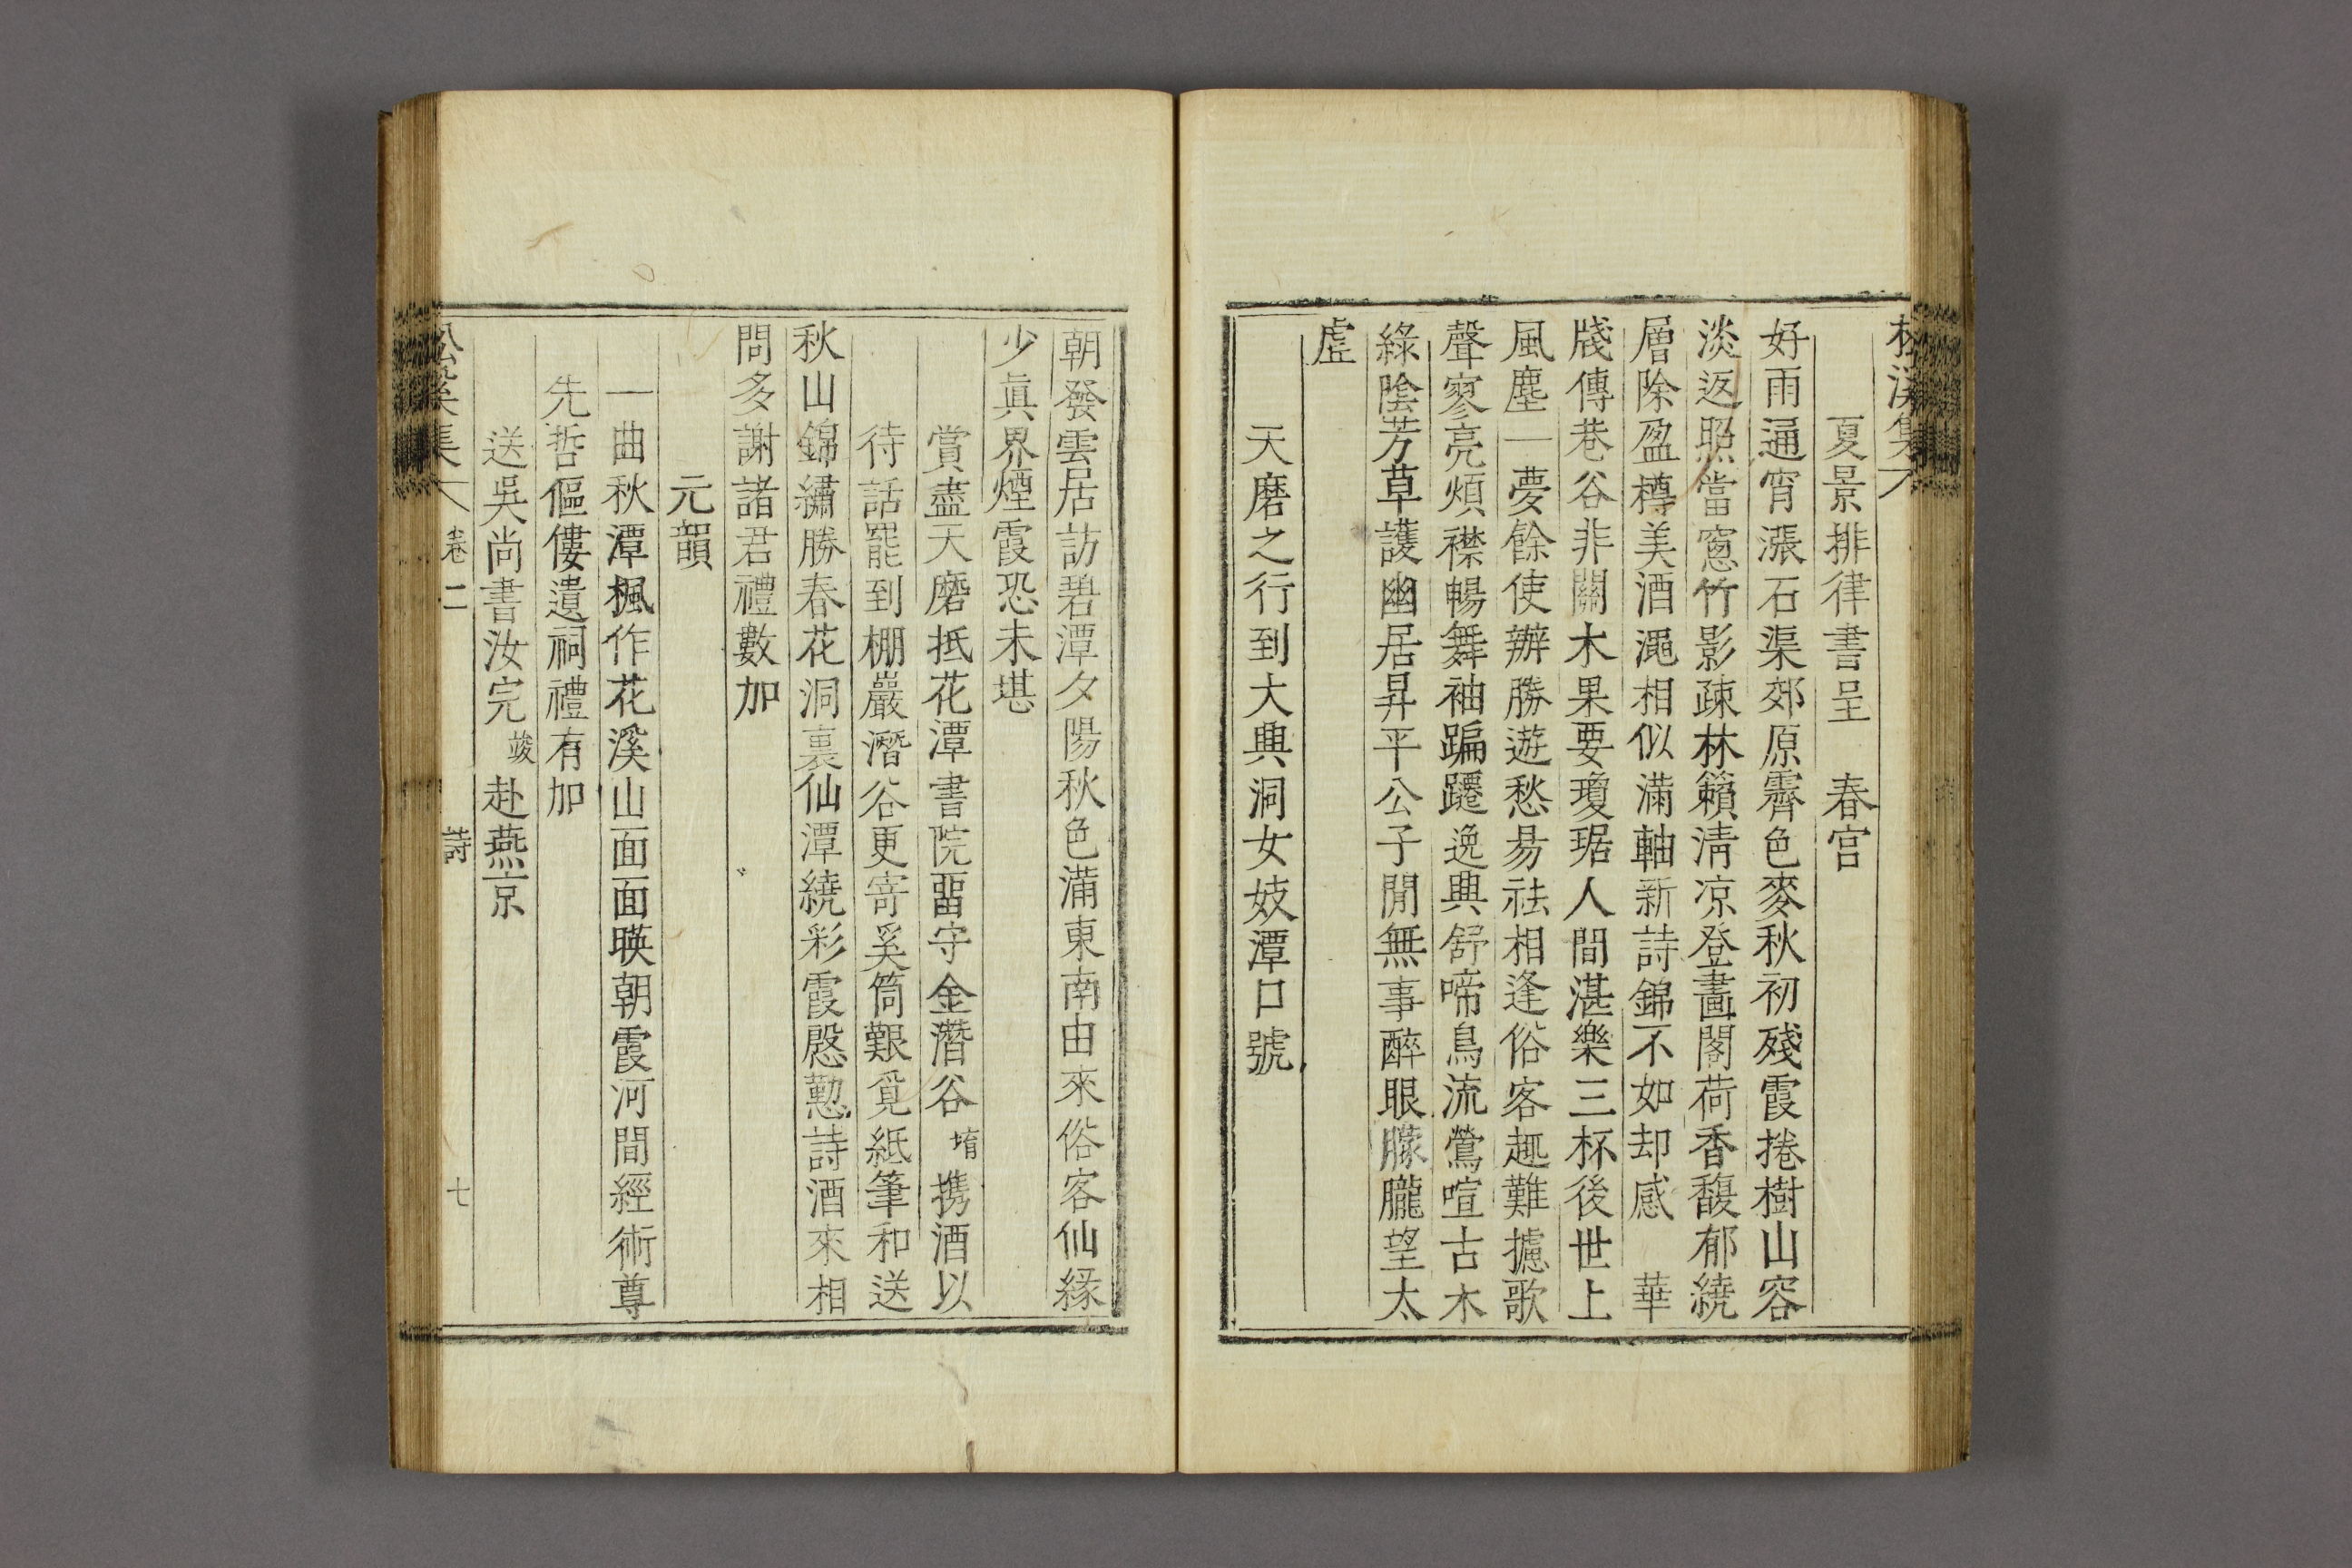 夏景排律書呈 春宮
好雨通宵漲石渠郊原霽色麥秋初殘霞捲樹山容
淡返照當窓竹影疎林籟淸凉登畵閣荷香馥郁繞
層除盈樽美酒澠相似滿軸新詩錦不如却感 華
牋傳巷谷非關木果要瓊琚人間湛樂三杯後世上
風塵一夢餘使辦勝遊愁易祛相逢俗客趣難攄歌
聲寥亮煩襟暢舞袖蹁躚逸興舒啼鳥流鶯喧古木
綠陰芳草護幽居昇平公子閒無事醉眼朦朧望太
虛
天磨之行到大興洞女妓潭口號
朝發雲居訪碧潭夕陽秋色滿東南由來俗客仙緣
少眞界煙霞恐未堪
賞盡天磨抵花潭書院畱守金潛谷堉携酒以
待話罷到棚巖潛谷更寄奚筒艱覓紙筆和送
秋山錦繡勝春花洞裏仙潭繞彩霞慇懃詩酒來相
問多謝諸君禮數加
元韻
一曲秋潭楓作花溪山面面暎朝霞河間經術尊
先哲傴僂遺祠禮有加
送吳尚書汝完竣赴燕京
松溪集 卷二 詩 七